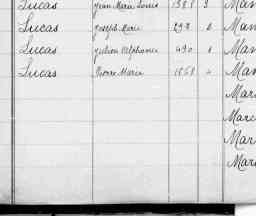 Lucas Jean Marie Louis 1388 3 Man
Lucas Joseph Marie 293 2 Man
Lucas Julien Alphonse 490 1 Man
Lucas Pierre Marie 1868 Man
Mar
Marc
Mar
Mar